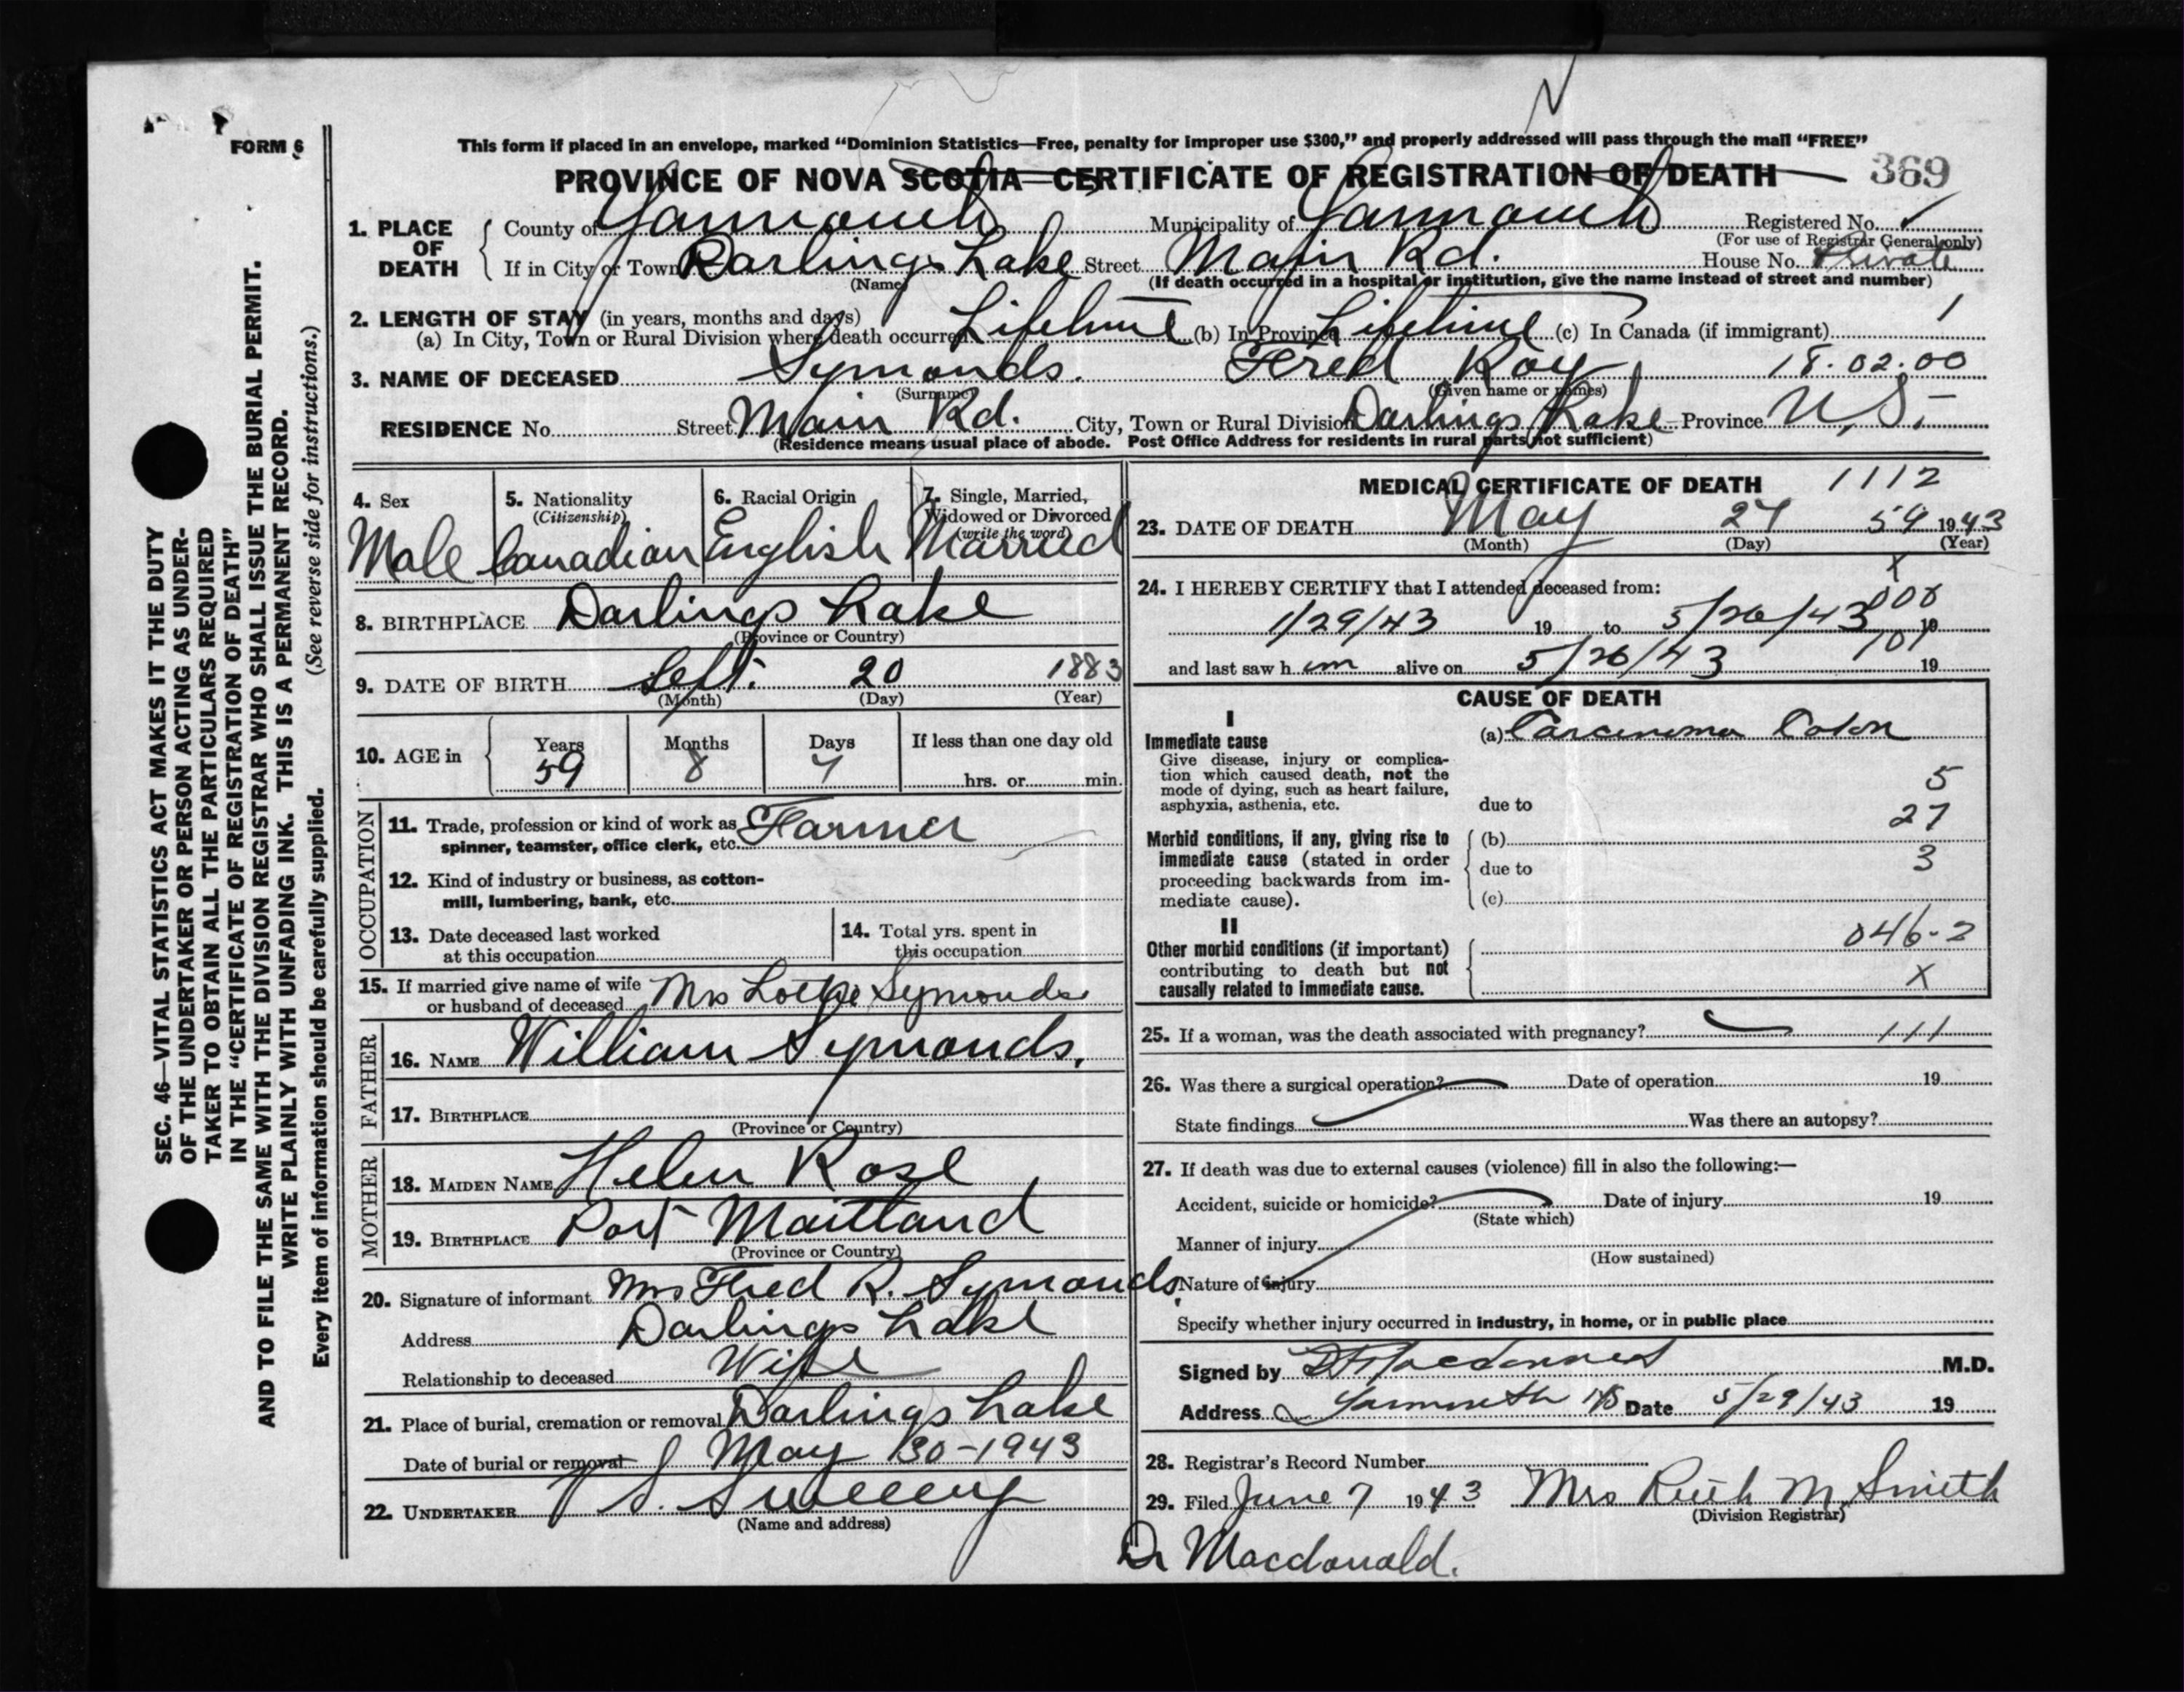 FORM 6
This form if placed in an envelope, marked “Dominion Statistics—Free, penalty for improper use $300,” and properly addressed will pass through the mail “FREE”
PROVINCE OF NOVA SCOTIA—CERTIFICATE OF REGISTRATION OF DEATH 369
1. PLACE OF DEATH County of Yarmouth Municipality of Yarmouth Registered No.
(For use of Registrar General only)
If in City or Town Darlings Lake Street Main Rd. House No. Private
(Name) (If death occurred in a hospital or institution, give the name instead of street and number)
2. LENGTH OF STAY (in years, months and days) 1
(a) In City, Town or Rural Division where death occurred Lifetime (b) In Province Lifetime (c) In Canada (if immigrant)
3. NAME OF DECEASED Symonds. Fred Roy 18.02.00
(Surname) (Given name or names)
RESIDENCE No. Street Main Rd. City, Town or Rural Division Darlings Lake Province N.S.
(Residence means usual place of abode. Post Office Address for residents in rural parts not sufficient)
4. Sex 5. Nationality (Citizenship) 6. Racial Origin 7. Single, Married, Widowed or Divorced (write the word)
Male Canadian English Married
8. BIRTHPLACE Darlings Lake
(Province or Country)
9. DATE OF BIRTH Sept. 20 1883
(Month) (Day) (Year)
10. AGE in Years Months Days If less than one day old
59 8 7 hrs. or min.
OCCUPATION
11. Trade, profession or kind of work as Farmer
spinner, teamster, office clerk, etc.
12. Kind of industry or business, as cotton-
mill, lumbering, bank, etc.
13. Date deceased last worked
at this occupation
14. Total yrs. spent in
this occupation
15. If married give name of wife
or husband of deceased Mrs Symonds
FATHER
16. NAME William Symonds.
17. BIRTHPLACE
(Province or Country)
MOTHER
18. MAIDEN NAME Helen Rose
19. BIRTHPLACE Port Maitland
(Province or Country)
20. Signature of informant Mrs Fred R. Symonds.
Address Darlings Lake
Relationship to deceased Wife
21. Place of burial, cremation or removal Darlings Lake
Date of burial or removal May 30-1943
22. UNDERTAKER V S. Sweeny
(Name and address)
MEDICAL CERTIFICATE OF DEATH 1112
23. DATE OF DEATH May 27 59 1943
(Month) (Day) (Year)
X
24. I HEREBY CERTIFY that I attended deceased from:
1/29/43 19 to 5/26/43 19
and last saw h im alive on 5/26/43 19
CAUSE OF DEATH
I
Immediate cause (a) Carcinoma Colon
Give disease, injury or complica-
tion which caused death, not the
mode of dying, such as heart failure,
asphyxia, asthenia, etc.
5
due to
27
Morbid conditions, if any, giving rise to (b)
immediate cause (stated in order due to 3
proceeding backwards from im-
mediate cause). (c)
II
046-2
Other morbid conditions (if important)
contributing to death but not X
causally related to immediate cause.
25. If a woman, was the death associated with pregnancy? 111
26. Was there a surgical operation? Date of operation 19
State findings Was there an autopsy?
27. If death was due to external causes (violence) fill in also the following:—
Accident, suicide or homicide? Date of injury 19
(State which)
Manner of injury
(How sustained)
Nature of injury
Specify whether injury occurred in industry, in home, or in public place
Signed by M.D.
Address Yarmouth NS Date 5/29/43 19
28. Registrar's Record Number
29. Filed June 7 1943 Mrs Ruth M. Smith
(Division Registrar)
Dr Macdonald.
SEC. 46—VITAL STATISTICS ACT MAKES IT THE DUTY
OF THE UNDERTAKER OR PERSON ACTING AS UNDER-
TAKER TO OBTAIN ALL THE PARTICULARS REQUIRED
IN THE “CERTIFICATE OF REGISTRATION OF DEATH”
AND TO FILE THE SAME WITH THE DIVISION REGISTRAR WHO SHALL ISSUE THE BURIAL PERMIT.
WRITE PLAINLY WITH UNFADING INK. THIS IS A PERMANENT RECORD.
Every item of information should be carefully supplied. (See reverse side for instructions.)